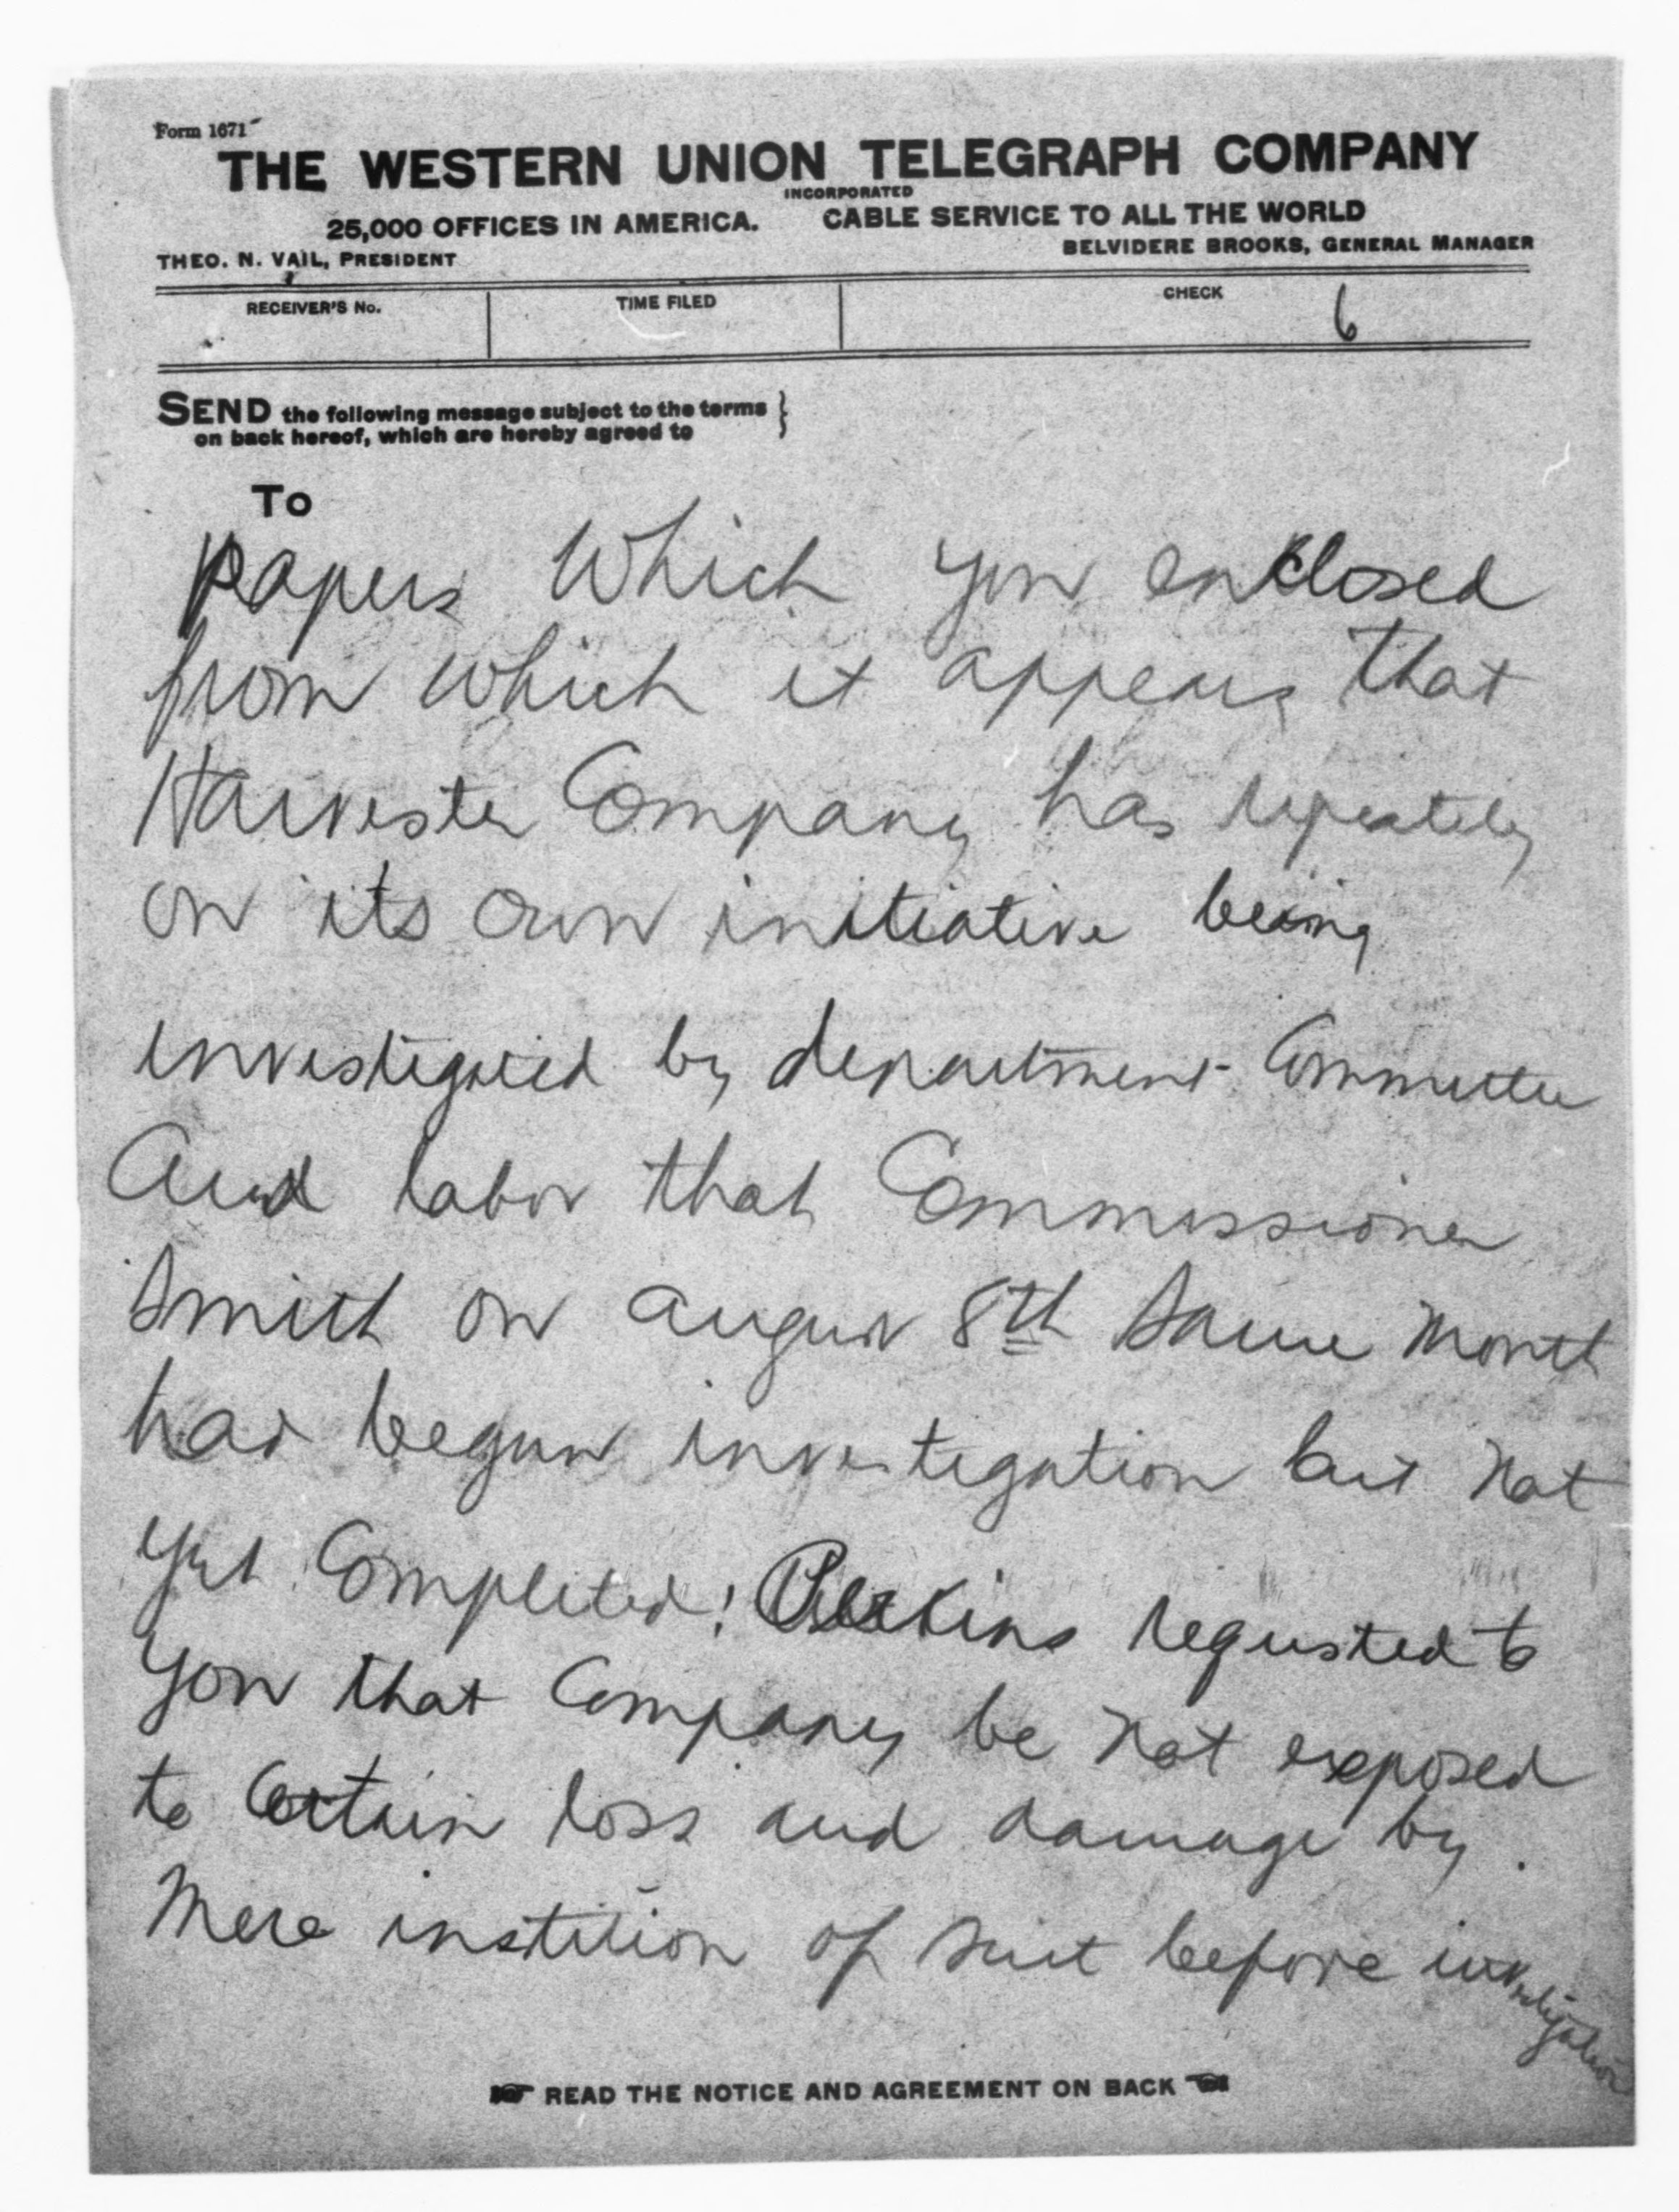 Form 1671
THE WESTERN UNION TELEGRAPH COMPANY
INCORPORATED
25,000 OFFICES IN AMERICA. CABLE SERVICE TO ALL THE WORLD
THEO. N. VAIL, PRESIDENT BELVIDERE BROOKS, GENERAL MANAGER
RECEIVER'S No. TIME FILED CHECK 6
SEND the following message subject to the terms }
on back hereof, which are hereby agreed to
To
papers Which you enclosed
from which it appears that
Harvester Company has repeately
on its own initiative being
investigated by department Committee
and labor that Commissioner
Smith on august 8th Same Month
had begun investigation but Not
yet Completed! Perkins requested to
you that Company be Not exposed
to Certain loss and damage by
Mere instition of suit before investigation
READ THE NOTICE AND AGREEMENT ON BACK